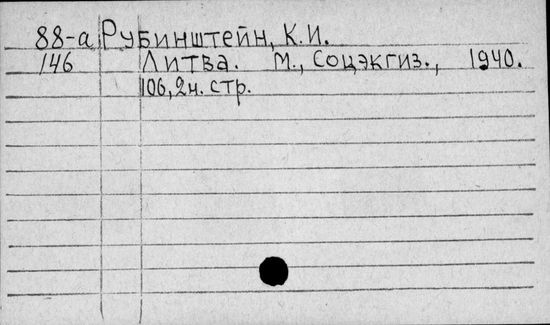 88-а Рубинштейн, К.И.
146 Литва. М., Соцэкгиз., 1940.
106,2н. стр.